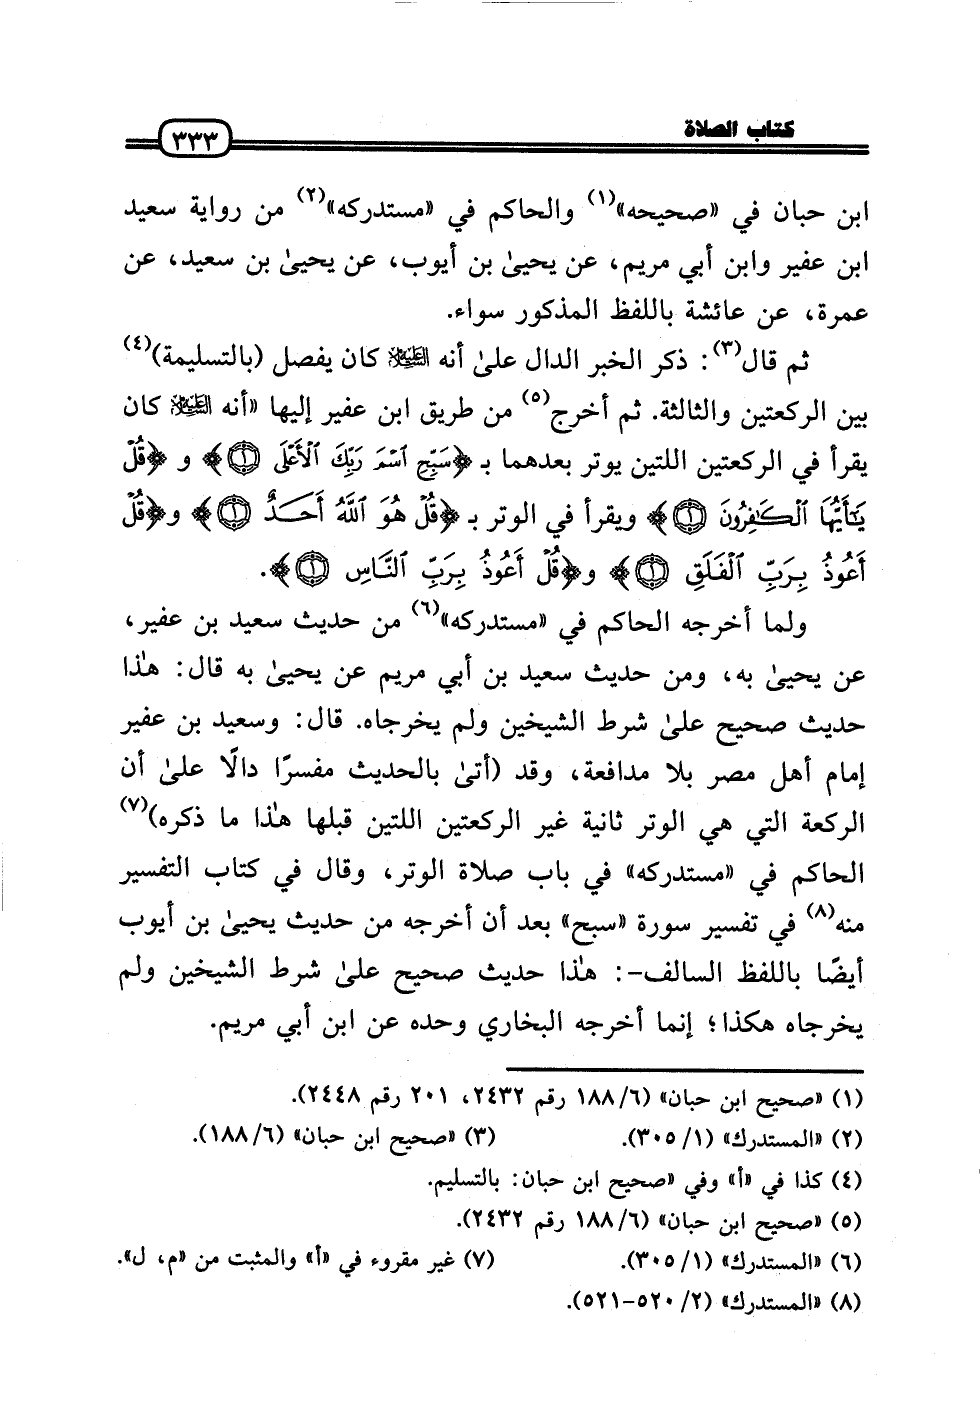 كتاب الصلاة
٣٣٣
ابن حبان في «صحيحه»(١) والحاكم في «مستدركه»(٢) من رواية سعيد
ابن عفير وابن أبي مريم، عن يحيىٰ بن أيوب، عن يحيىٰ بن سعيد، عن
عمرة، عن عائشة باللفظ المذكور سواء.
ثم قال(٣): ذكر الخبر الدال علىٰ أنه العَلِيْهِ كان يفصل (بالتسليمة)(٤)
بين الركعتين والثالثة. ثم أخرج(٥) من طريق ابن عفير إليها «أنه العَلِيْهِ كان
يقرأ في الركعتين اللتين يوتر بعدهما بـ ﴿سَبِّحِ ٱسْمَ رَبِّكَ ٱلْأَعْلَى ۝١﴾ و ﴿قُلْ
يَٰٓأَيُّهَا ٱلْكَٰفِرُونَ ۝١﴾ ويقرأ في الوتر بـ ﴿قُلْ هُوَ ٱللَّهُ أَحَدٌ ۝١﴾ و﴿قُلْ
أَعُوذُ بِرَبِّ ٱلْفَلَقِ ۝١﴾ و﴿قُلْ أَعُوذُ بِرَبِّ ٱلنَّاسِ ۝١﴾.
ولما أخرجه الحاكم في «مستدركه»(٦) من حديث سعيد بن عفير،
عن يحيىٰ به، ومن حديث سعيد بن أبي مريم عن يحيىٰ به قال: هٰذا
حديث صحيح علىٰ شرط الشيخين ولم يخرجاه. قال: وسعيد بن عفير
إمام أهل مصر بلا مدافعة، وقد (أتىٰ بالحديث مفسرًا دالًا علىٰ أن
الركعة التي هي الوتر ثانية غير الركعتين اللتين قبلها هٰذا ما ذكره)(٧)
الحاكم في «مستدركه» في باب صلاة الوتر، وقال في كتاب التفسير
منه(٨) في تفسير سورة «سبح» بعد أن أخرجه من حديث يحيىٰ بن أيوب
أيضًا باللفظ السالف-: هٰذا حديث صحيح علىٰ شرط الشيخين ولم
يخرجاه هكذا؛ إنما أخرجه البخاري وحده عن ابن أبي مريم.
(١) «صحيح ابن حبان» (٦/ ١٨٨ رقم ٢٤٣٢، ٢٠١ رقم ٢٤٤٨).
(٢) «المستدرك» (١/ ٣٠٥). (٣) «صحيح ابن حبان» (٦/ ١٨٨).
(٤) كذا في «أ» وفي «صحيح ابن حبان: بالتسليم.
(٥) «صحيح ابن حبان» (٦/ ١٨٨ رقم ٢٤٣٢).
(٦) «المستدرك» (١/ ٣٠٥). (٧) غير مقروء في «أ» والمثبت من «م، ل».
(٨) «المستدرك» (٢/ ٥٢٠-٥٢١).